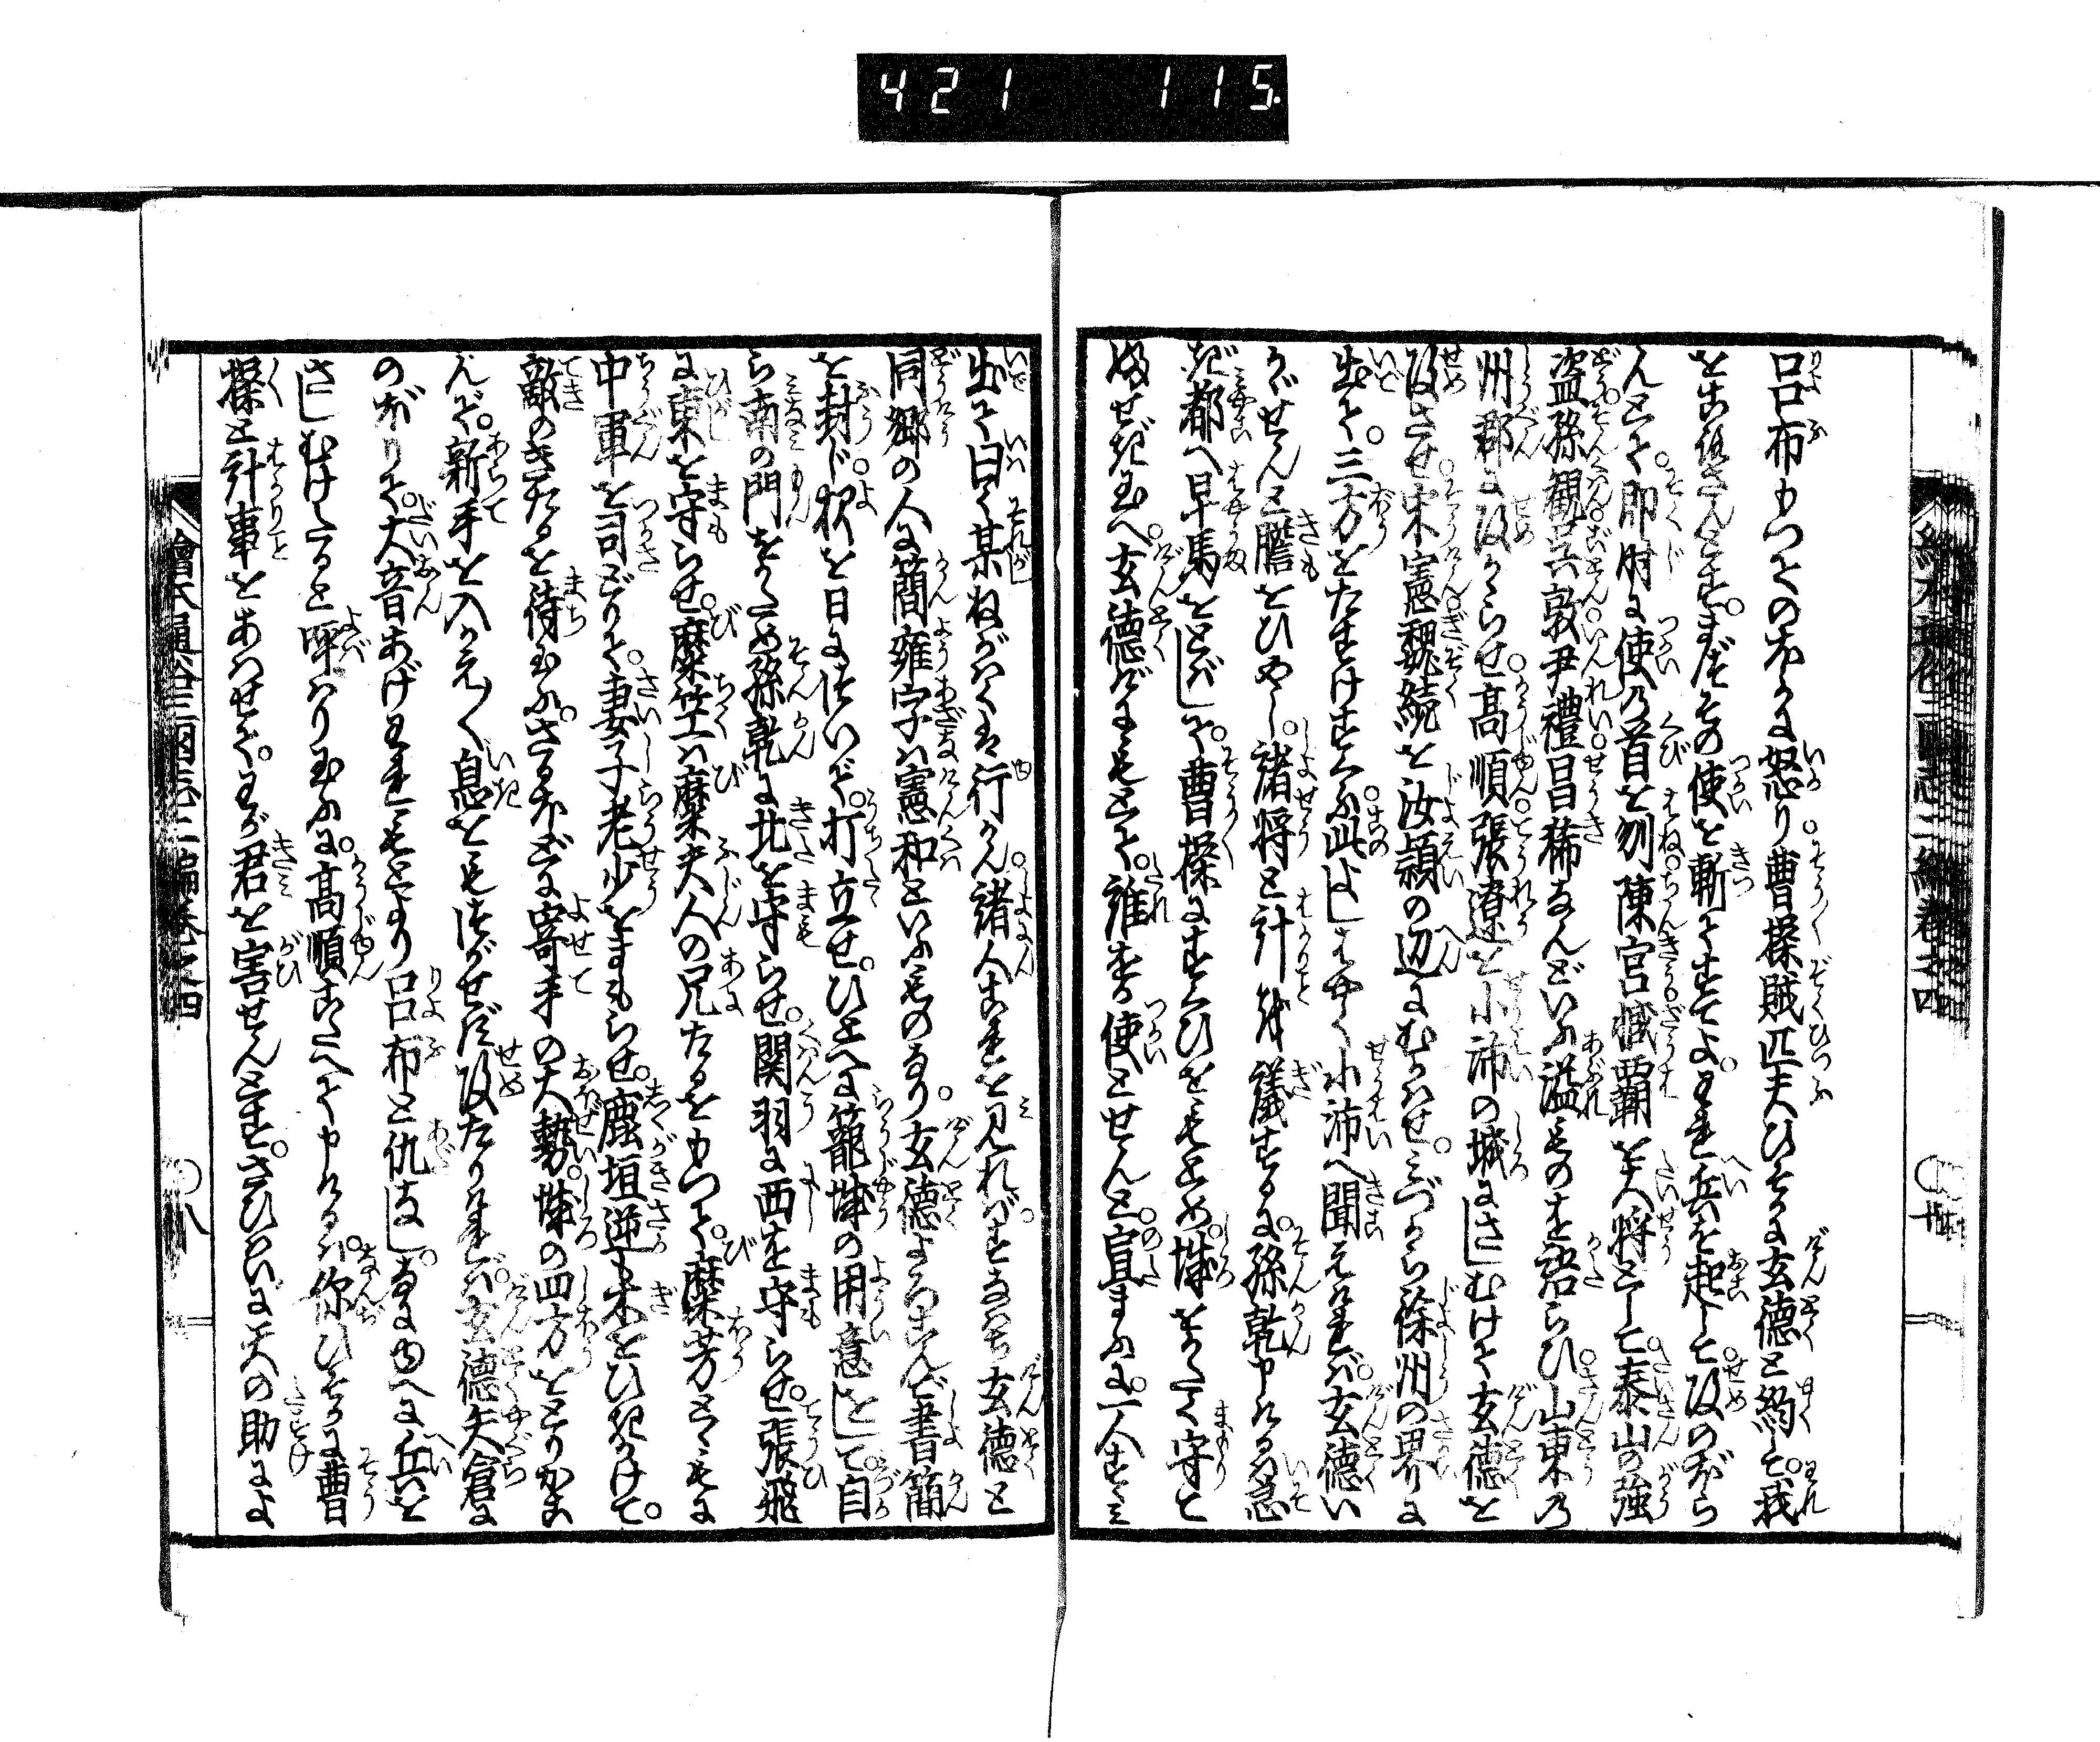 421 115.
呂布もつての外に怒り曹操賊匹夫ひそかに玄徳と約して我
をほろぼさんとす。まづその使を斬てすてよ。われ兵を起して攻のぼら
んとて即時に使の首を刎陳宮臧覇を大将として。泰山の強
盗孫観呉敦尹禮昌豨なんどいふ溢ものを語らひ山東の
州郡に攻かゝらせ高順張遼を小沛の城にさしむけて玄徳を
攻させ宋憲魏続を汝穎の辺にむかはせ。みづから徐州の界に
出て。三方をたすけすくふ此よしはやく小沛へ聞えければ。玄徳い
かゞせんと膽をひやし。諸将と計を議するに孫乾申けるは急
ぎ都へ早馬をとばして。曹操にすくひをもとめ。城をかたく守て
ふせぎ玉へ。玄徳げにもとて。誰をか使とせんと宣まふに。一人すゝみ
出て曰く某ねがはくは行かん諸人これを見ればすなはち玄徳と
同郷の人に簡雍字は憲和といふものなり。玄徳よろこんで書簡
を封じ夜を日についで。打立せ。ひとへに籠城の用意をして。自
ら南の門をかため孫乾に北を守らせ。関羽に西を守らせ。張飛
に東を守らせ。糜竺は糜夫人の兄たるをもつて。糜芳とゝもに
中軍を司どりて。妻子老少をまもらせ。鹿垣逆も木をひきかけて。
敵のきたるを待玉ふ。さるほどに寄手の大勢。城の四方をとりかこ
んで。新手を入かえ〳〵息をもつがせず攻たりければ。玄徳矢倉に
のぼりて。大音あげわれもとより呂布と仇なし。なにゆへに兵を
さしむけたると呼はり玉ふに。高順こたへて申けるは。你ひそかに曹
操と計事をあはせて。わが君を害せんとす。さひはひに天の助によ
繪本通俗三國志二編巻之四
〇八